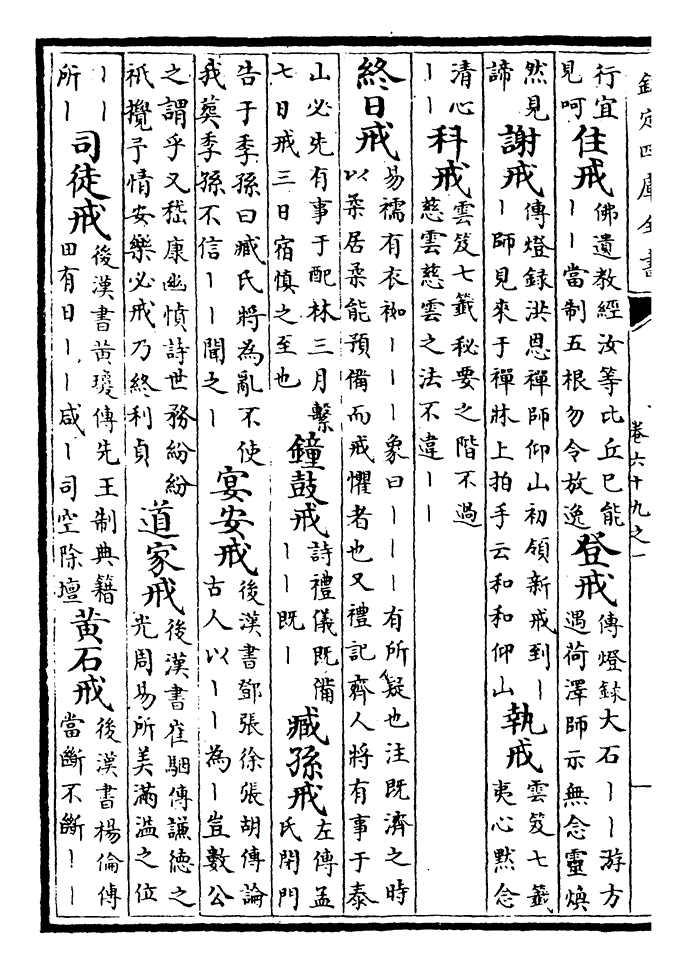 欽定四庫全書
卷六十九之一
行宜
見呵
住戒
佛遺教經汝等比丘已能
丨丨當制五根勿令放逸
登戒
傳燈錄大石丨丨游方
遇荷澤師示無念靈煥
然見
諦
謝戒
傳燈錄洪恩禪師仰山初領新戒到丨
丨師見來于禪牀上拍手云和和仰山
執戒
雲笈七籤
夷心黙念
清心
丨丨
科戒
雲笈七籤秘要之階不過
慈雲慈雲之法不違丨丨
終日戒
易襦有衣袽丨丨丨象曰丨丨丨有所疑也注既濟之時
以柔居柔能預備而戒懼者也又禮記齊人將有事于泰
山必先有事于配林三月繫
七日戒三日宿慎之至也
鐘鼓戒
詩禮儀既備
丨丨既丨
臧孫戒
左傳孟
氏閉門
告于季孫曰臧氏將為亂不使
我葬季孫不信丨丨聞之丨
宴安戒
後漢書鄧張徐張胡傳論
古人以丨丨為丨豈數公
之謂乎又嵇康幽憤詩世務紛紛
祇攪予情安樂必戒乃終利貞
道家戒
後漢書崔駰傳謙德之
光周易所美滿溢之位
丨丨
所丨
司徒戒
後漢書黃瓊傳先王制典籍
田有日丨丨咸丨司空除壇
黃石戒
後漢書楊倫傳
當斷不斷丨丨